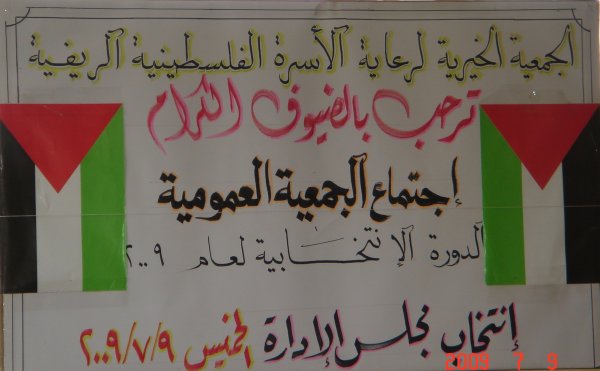 الجمعية الخيرية لرعاية الأسرة الفلسطينية الريفية
ترحب بالضيوف الكرام
إجتماع الجمعية العمومية
الدورة الإنتخابية لعام ٢٠٠٩
إنتخاب مجلس الإدارة الخميس ٢٠٠٩/٧/٩
2009 7 9